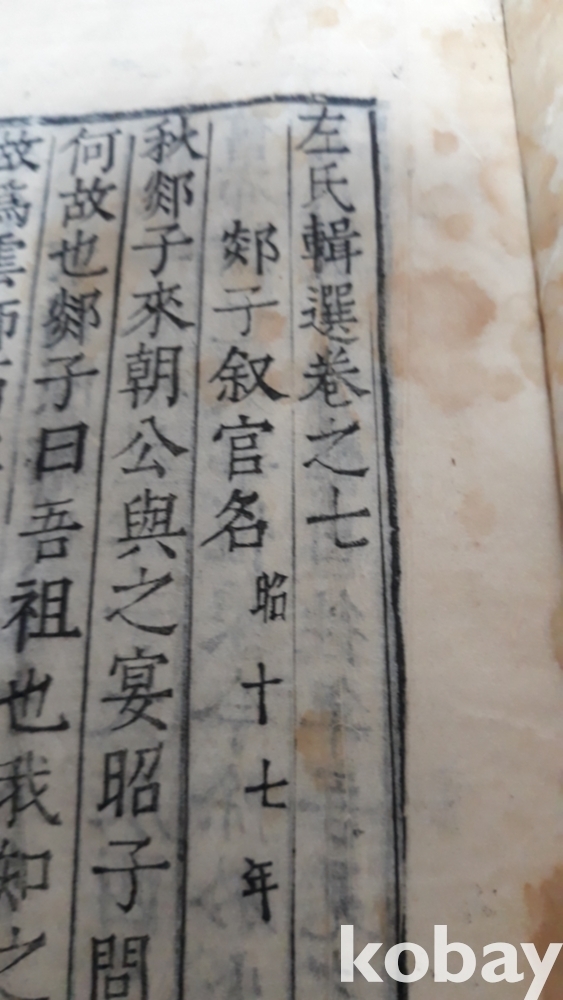 左氏輯選卷之七
郯子叙官名 昭十七年
秋郯子來朝公與之宴昭子問
何故也郯子曰吾祖也我知之
故爲雲師
kobay